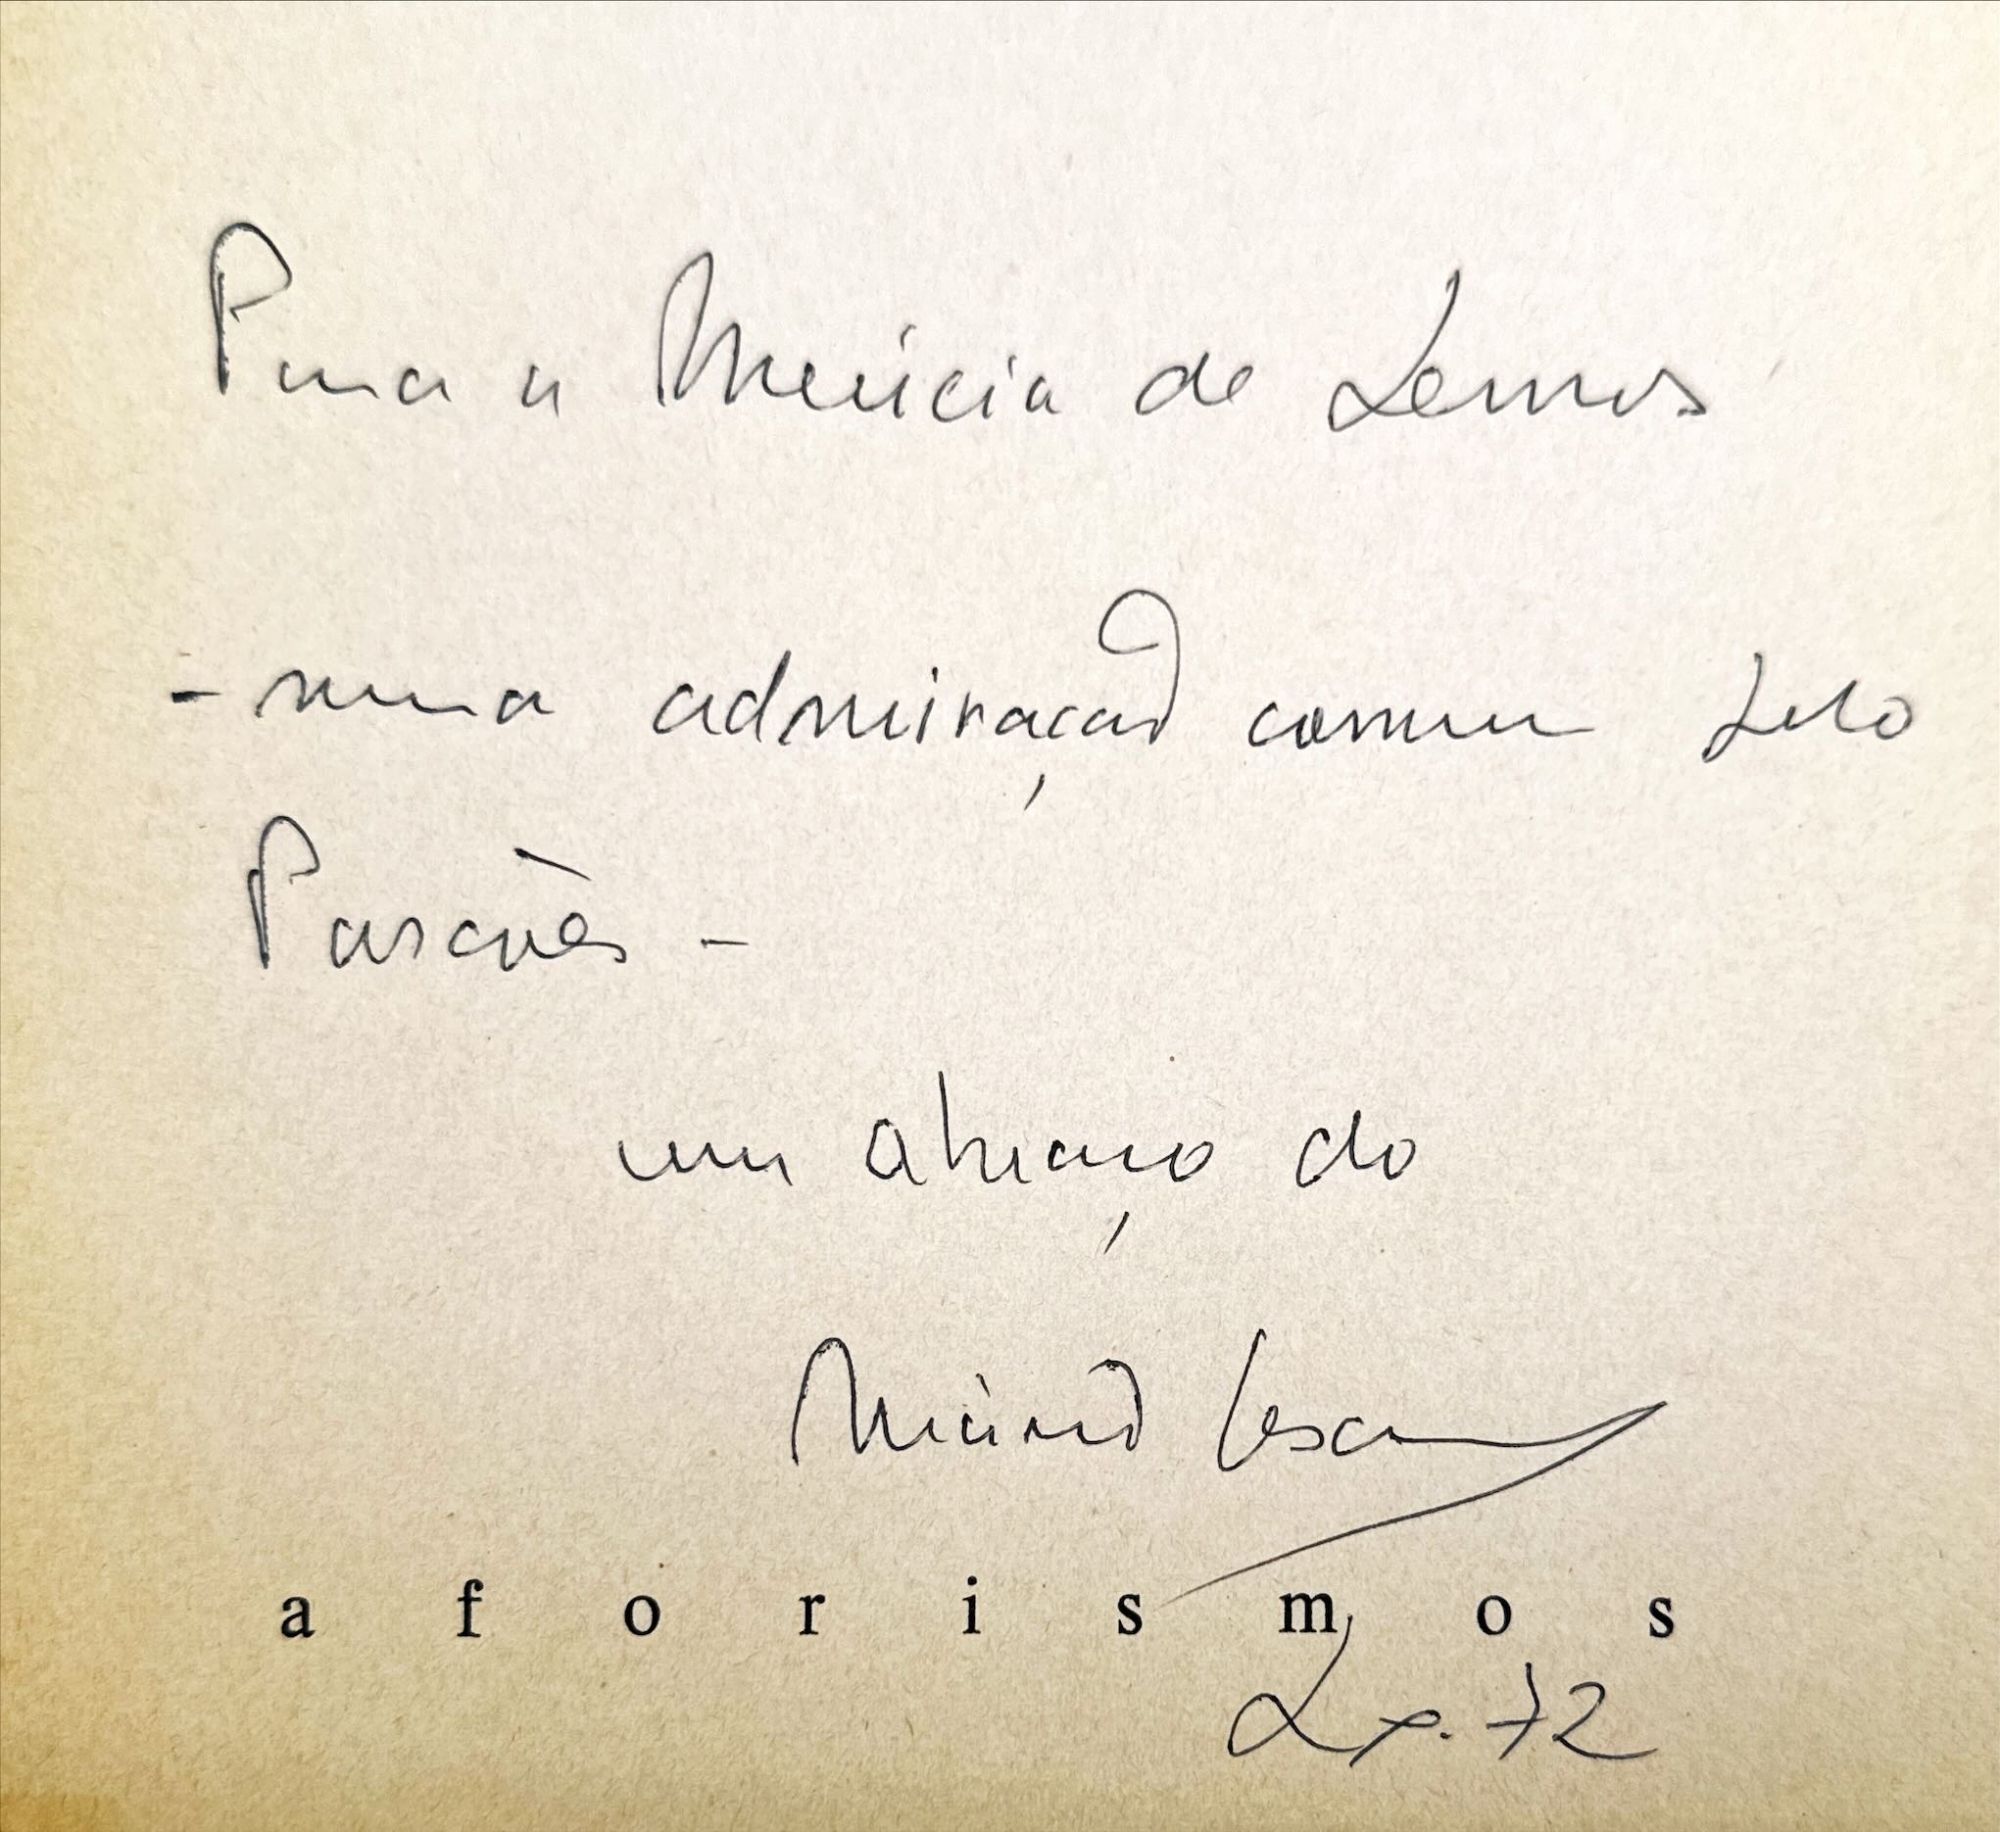 Para a Merícia de Lemos
- numa admiração comum pelo
Pascoàes -
um abraço do
Mário Cesariny
aforismos
Lx. 72